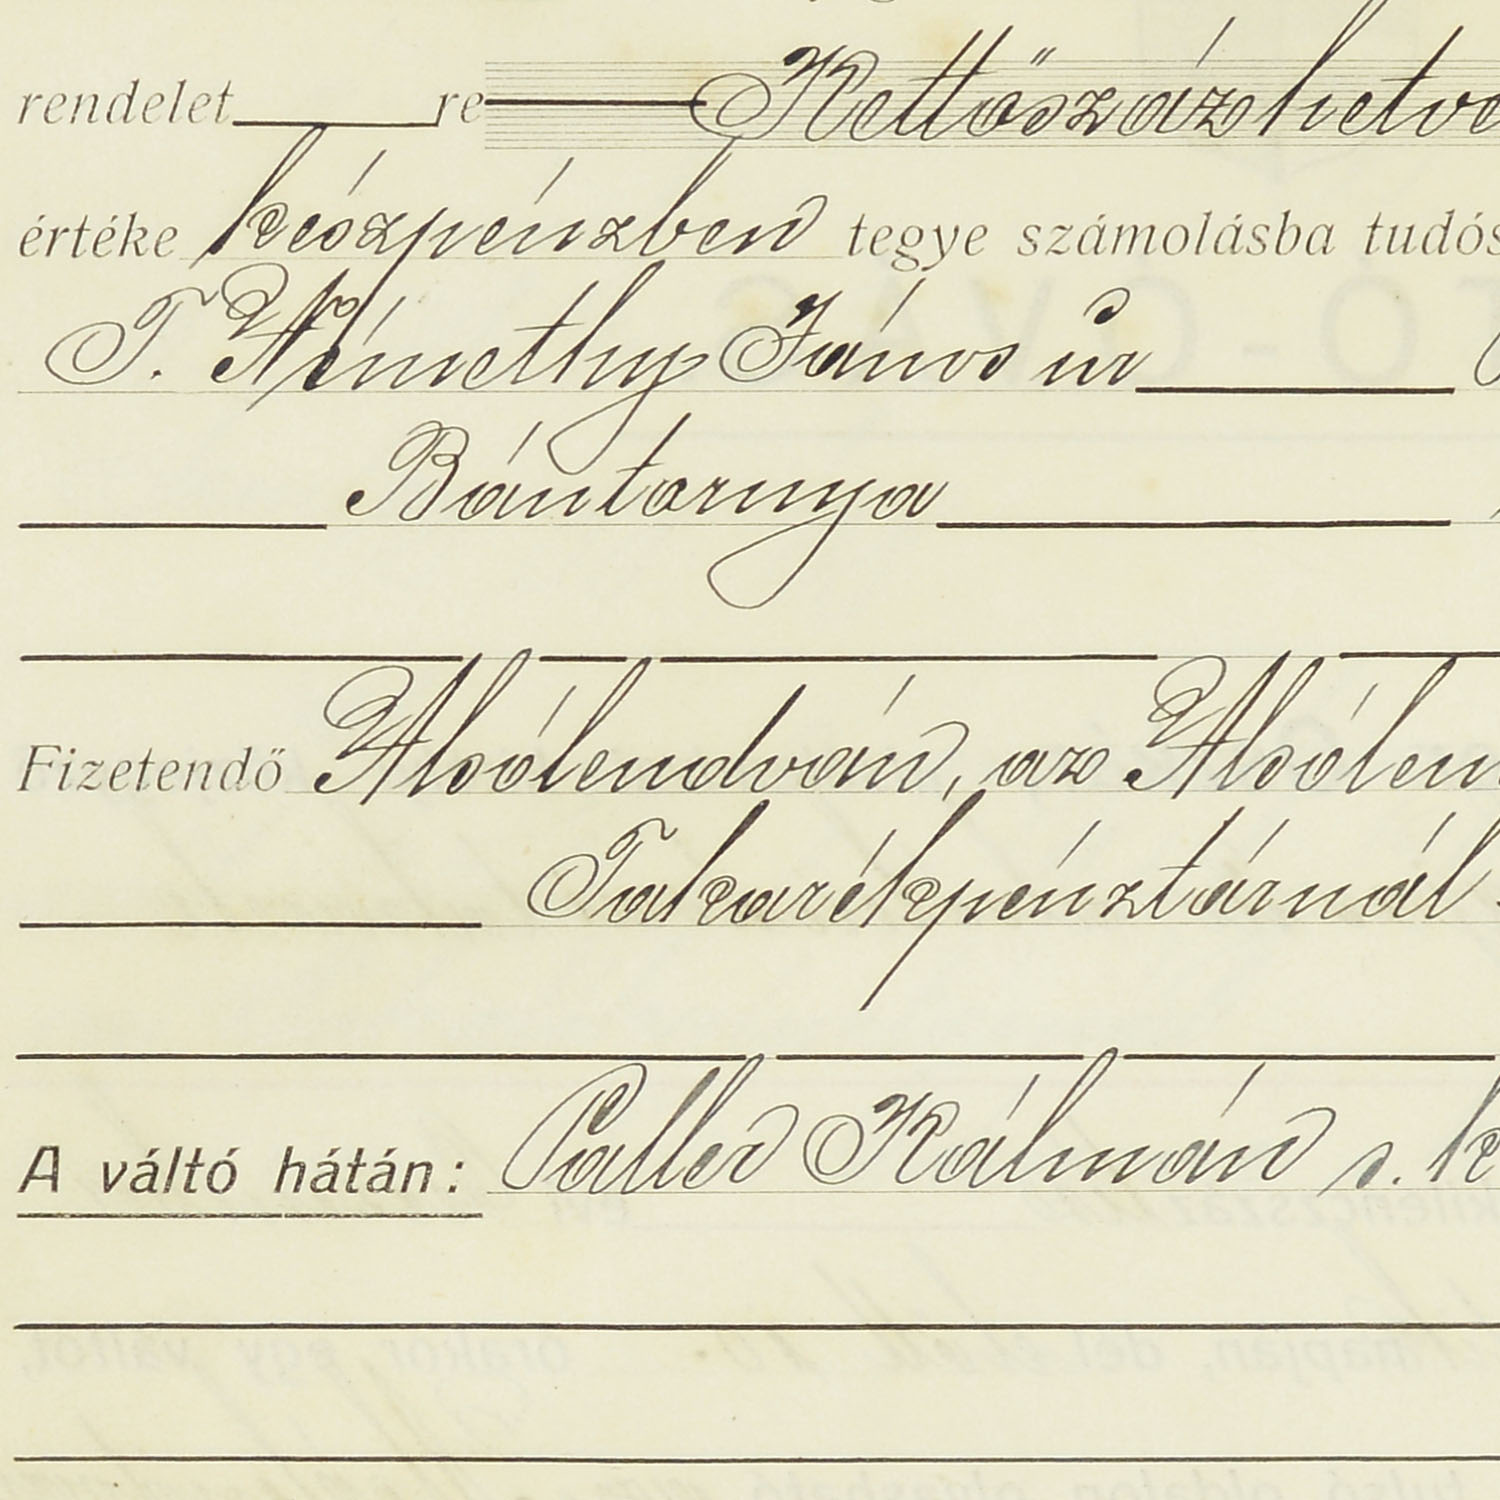 rendelet re Kettőszázhetve
értéke készpénzben tegye számolásba tudós
T. Némethy János úr
Bántornya
Fizetendő Alsólendván, az Alsólen
Takarékpénztárnál
A váltó hátán: Paller Kálmán s. k